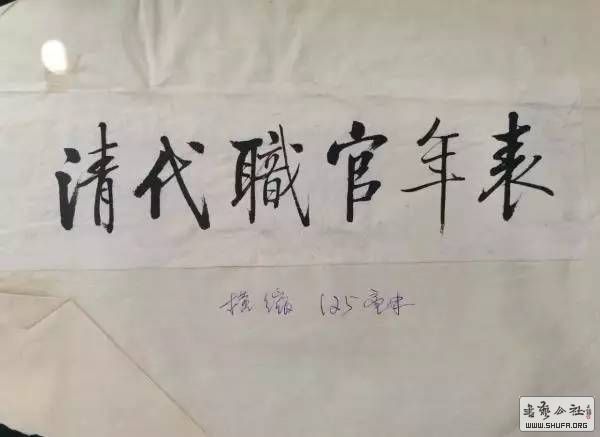 清代職官年表
横縮 125毫米
书艺公社
WWW.SHUFA.ORG